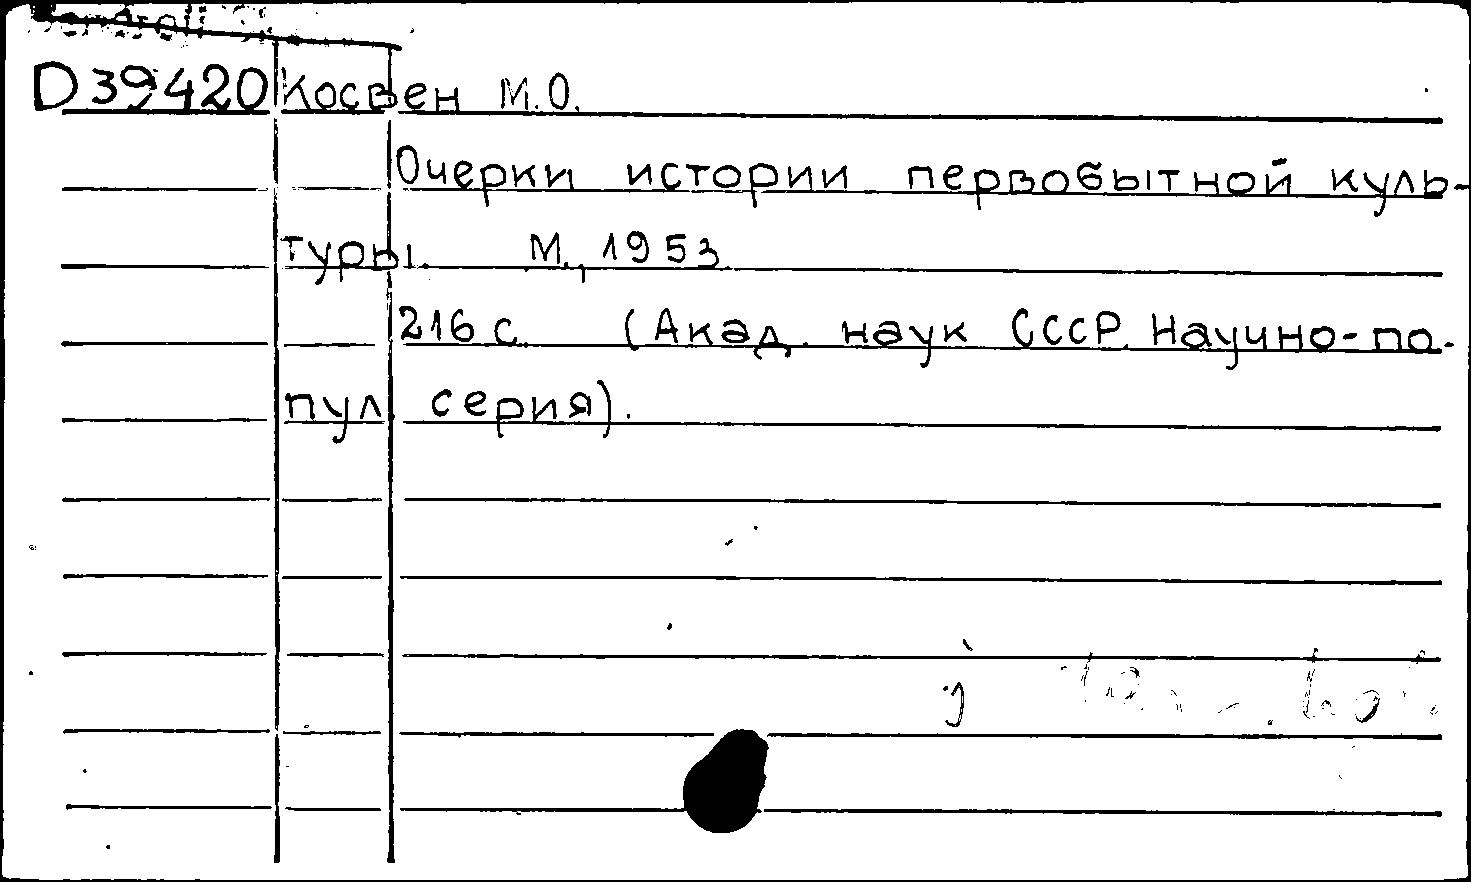 D 39420 Косвен М.О.
Очерки истории первобытной куль-
туры. М., 1953
216 с. (Акад. наук СССР. Научно-по-
пул. серия).